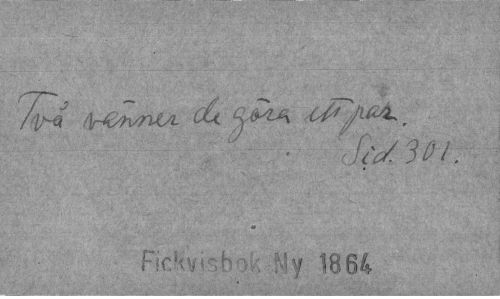 Två vänner de göra ett par.
Sid. 301.
Fickvisbok Ny 1864